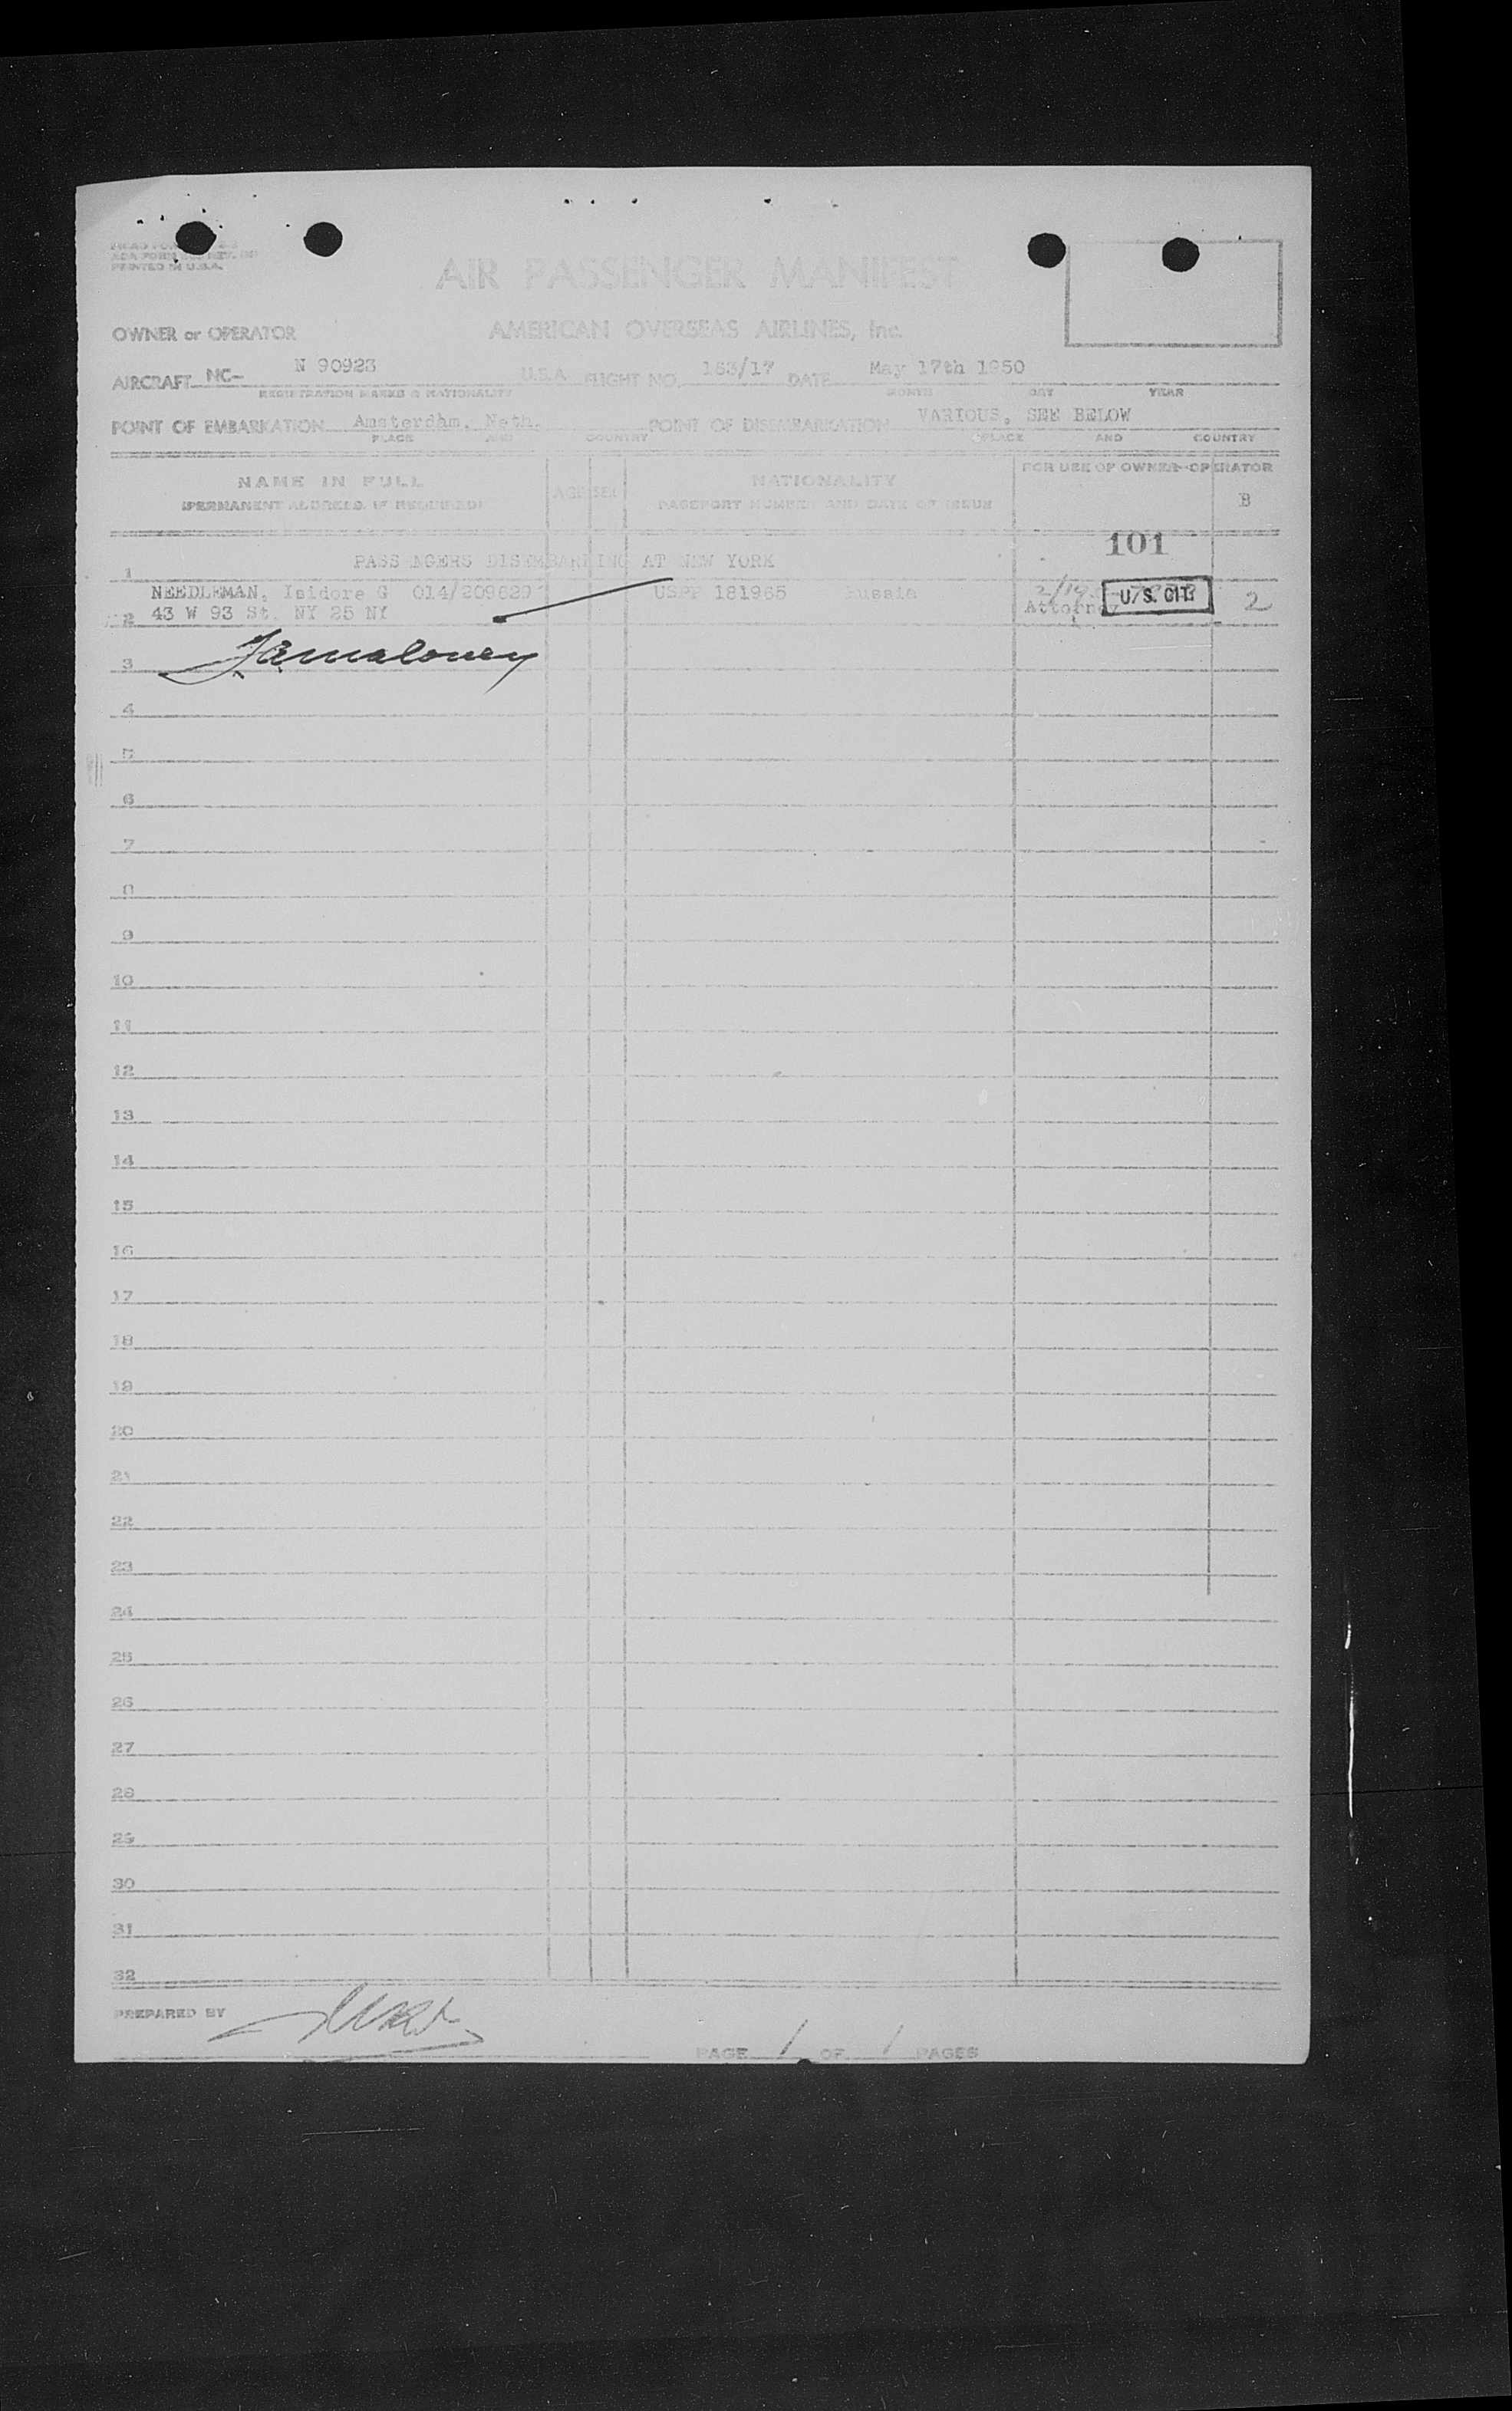 PRINTED IN U.S.A.
AIR PASSENGER MANIFEST
OWNER or OPERATOR AMERICAN OVERSEAS AIRLINES, Inc.
AIRCRAFT NC- N 90923 U.S.A. FLIGHT NO. 163/17 DATE May 17th 1950
REGISTRATION MARKS & NATIONALITY MONTH DAY YEAR
POINT OF EMBARKATION Amsterdam, Neth. POINT OF DISEMBARKATION VARIOUS, SEE BELOW
PLACE AND COUNTRY PLACE AND COUNTRY
NAME IN FULL AGE SEX NATIONALITY FOR USE OF OWNER-OPERATOR
(PERMANENT ADDRESS IF REQUIRED) PASSPORT NUMBER AND DATE OF ISSUE B
101
1 PASSENGERS DISEMBARKING AT NEW YORK
NEEDLEMAN, Isidore G 014/209629 USPP 181965 Russia U.S. CIT.
2 43 W 93 St. NY 25 NY Attorney 2
3
4
5
6
7
8
9
10
11
12
13
14
15
16
17
18
19
20
21
22
23
24
25
26
27
28
29
30
31
32
PREPARED BY
PAGE 1 OF 1 PAGES